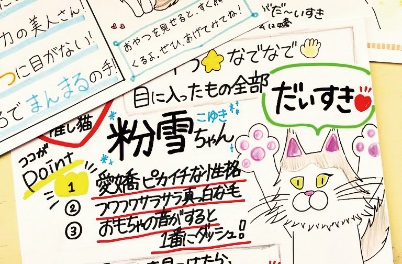 力の美人さん!
つに目がない!
ろでまんまるの手
おやつを見せると、すぐに
くるよ。ぜひ、あげてみてね!
だ〜いすき
つ⭐なでなで
目に入ったもの全部
だいすき
推し猫
こゆき
粉雪ちゃん
ココが
point
1 愛嬌ピカイチな性格
② フワフワサラサラ真っ白な毛
③ おもちゃの音がすると
1番にダッシュ!!